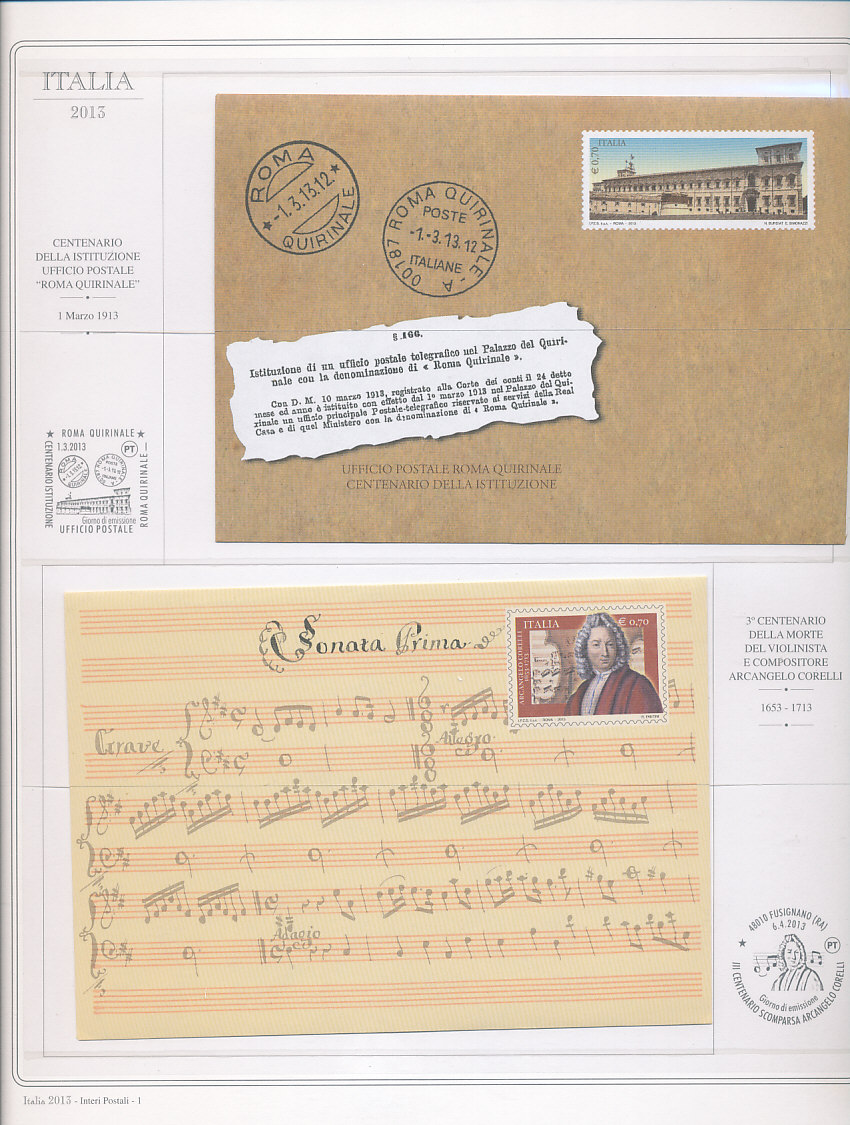 ITALIA
2013
CENTENARIO
DELLA ISTITUZIONE
UFFICIO POSTALE
“ROMA QUIRINALE”
1 Marzo 1913
★ ROMA QUIRINALE ★
1.3.2013
PT
CENTENARIO ISTITUZIONE
ROMA QUIRINALE
Giorno di emissione
UFFICIO POSTALE
ROMA
★ -1.3.13.12 ★
QUIRINALE
00187 ROMA QUIRINALE - A
POSTE
-1.-3.13.12
ITALIANE
ITALIA
€ 0,70
I.P.Z.S. S.p.A. - ROMA - 2013
§ 166.
Istituzione di un ufficio postale telegrafico nel Palazzo del Quiri-
nale con la denominazione di « Roma Quirinale ».
Con D. M. 10 marzo 1913, registrato alla Corte dei conti il 24 detto
mese ed anno è istituito con effetto dal 1º marzo 1913 nel Palazzo del Qui-
rinale un ufficio principale Postale-telegrafico riservato ai servizi della Real
Casa e di quel Ministero con la denominazione di « Roma Quirinale ».
UFFICIO POSTALE ROMA QUIRINALE
CENTENARIO DELLA ISTITUZIONE
Sonata Prima
ITALIA
€ 0,70
ARCANGELO CORELLI
1653-1713
I.P.Z.S. S.p.A. - ROMA - 2013
Grave
Allegro
Adagio
3° CENTENARIO
DELLA MORTE
DEL VIOLINISTA
E COMPOSITORE
ARCANGELO CORELLI
1653 - 1713
48010 FUSIGNANO (RA)
6.4.2013
★
PT
Giorno di emissione
III CENTENARIO SCOMPARSA ARCANGELO CORELLI
Italia 2013 - Interi Postali - 1